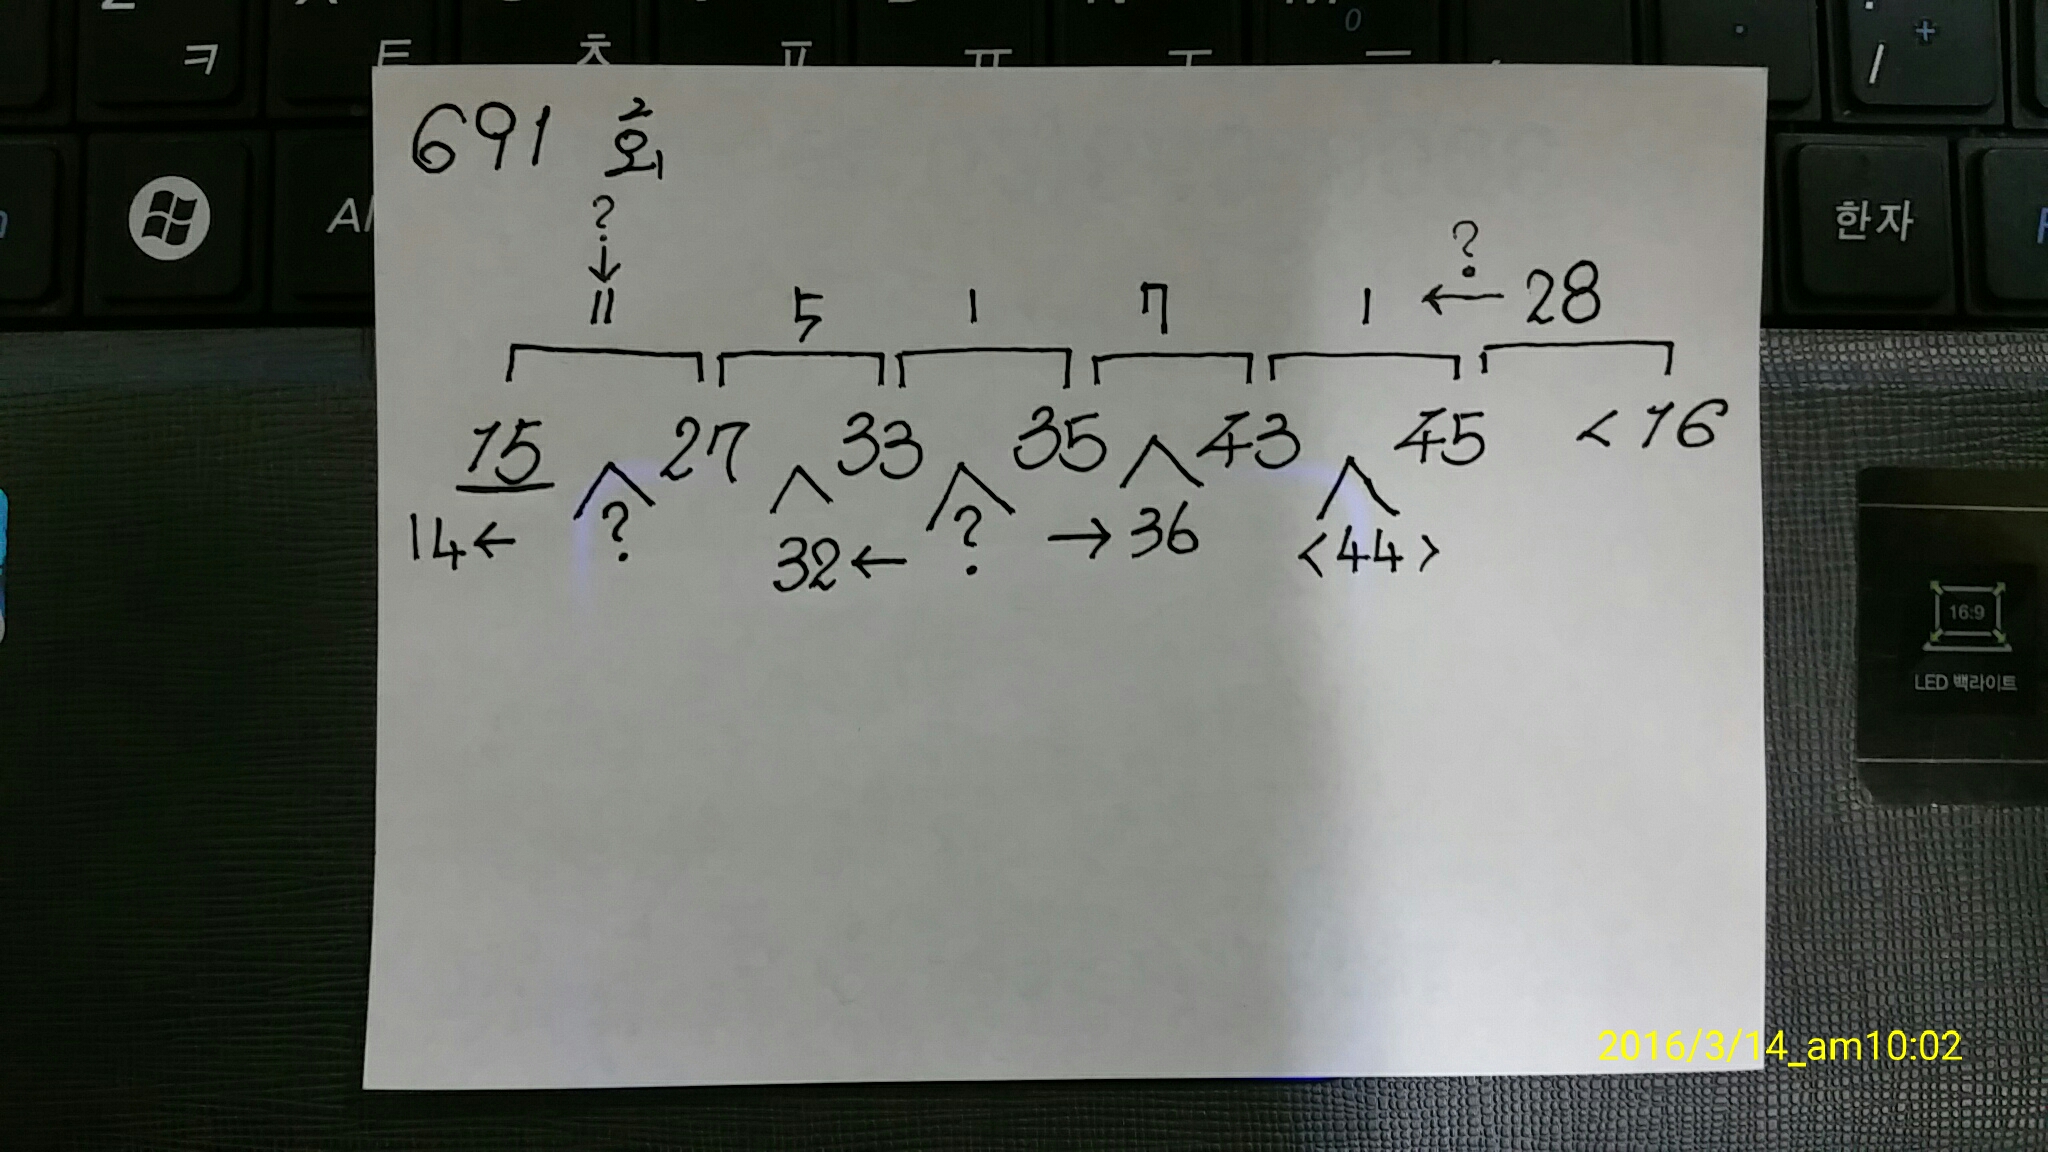 ㅋ ㅌ ㅊ ㅍ ㅠ ㅜ ㅡ 0 /  +
691 회
Al
한자
? ?
↓
11 5 1 7 1 ← 28
15 27 33 35 43 45 <16
14← ? 32← ? →36 <44>
16:9
LED 백라이트
2016/3/14_am10:02